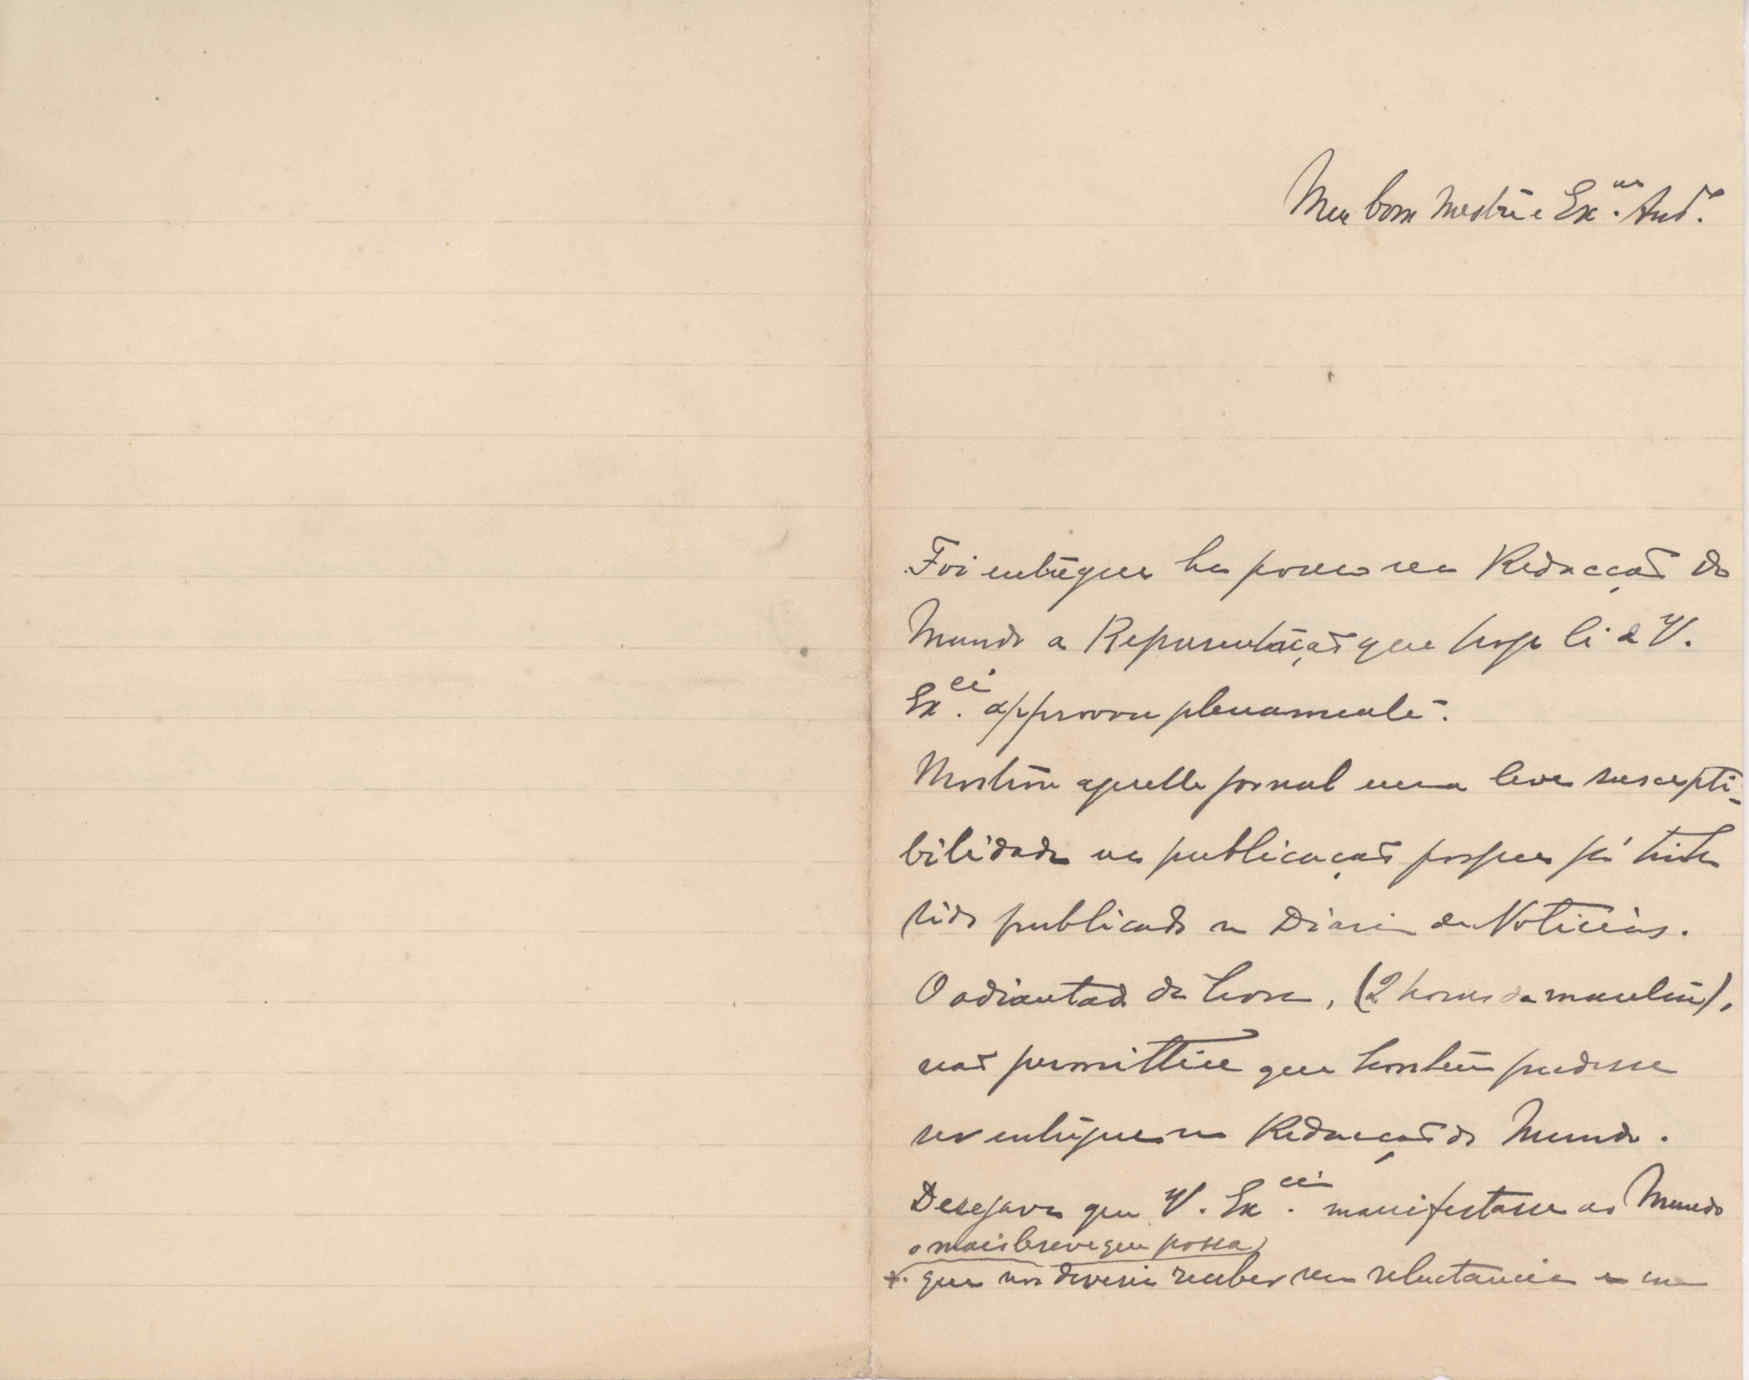 Meu bom Mestre e Ex.mo Am.º
Foi entregue ha pouco na Redacção do
Mundo a Representação que hoje li e V.
Ex.cia approvou plenamente.
Mostrou aquelle jornal uma leve suscepti-
bilidade na publicação porque já tinha
sido publicado no Diario de Noticias.
O adiantado da hora, (2 horas da manhã),
não permittiu que hontem pudesse
ser entregue na Redacção do Mundo.
Desejava que V. Ex.cia manifestasse ao Mundo
o mais breve que possa
+ que nos deveria receber sem reluctancia e